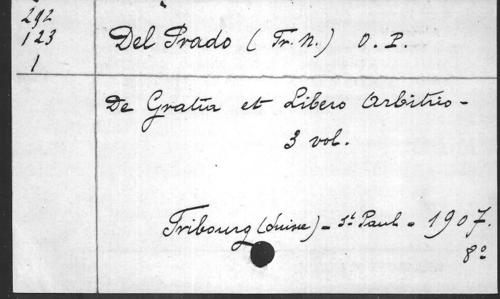 292
123
1
Del Prado (Fr. N.) O. P.
De Gratia et Libero Arbitrio -
3 vol.
Fribourg (Suisse) - St Paul - 1907.
8º